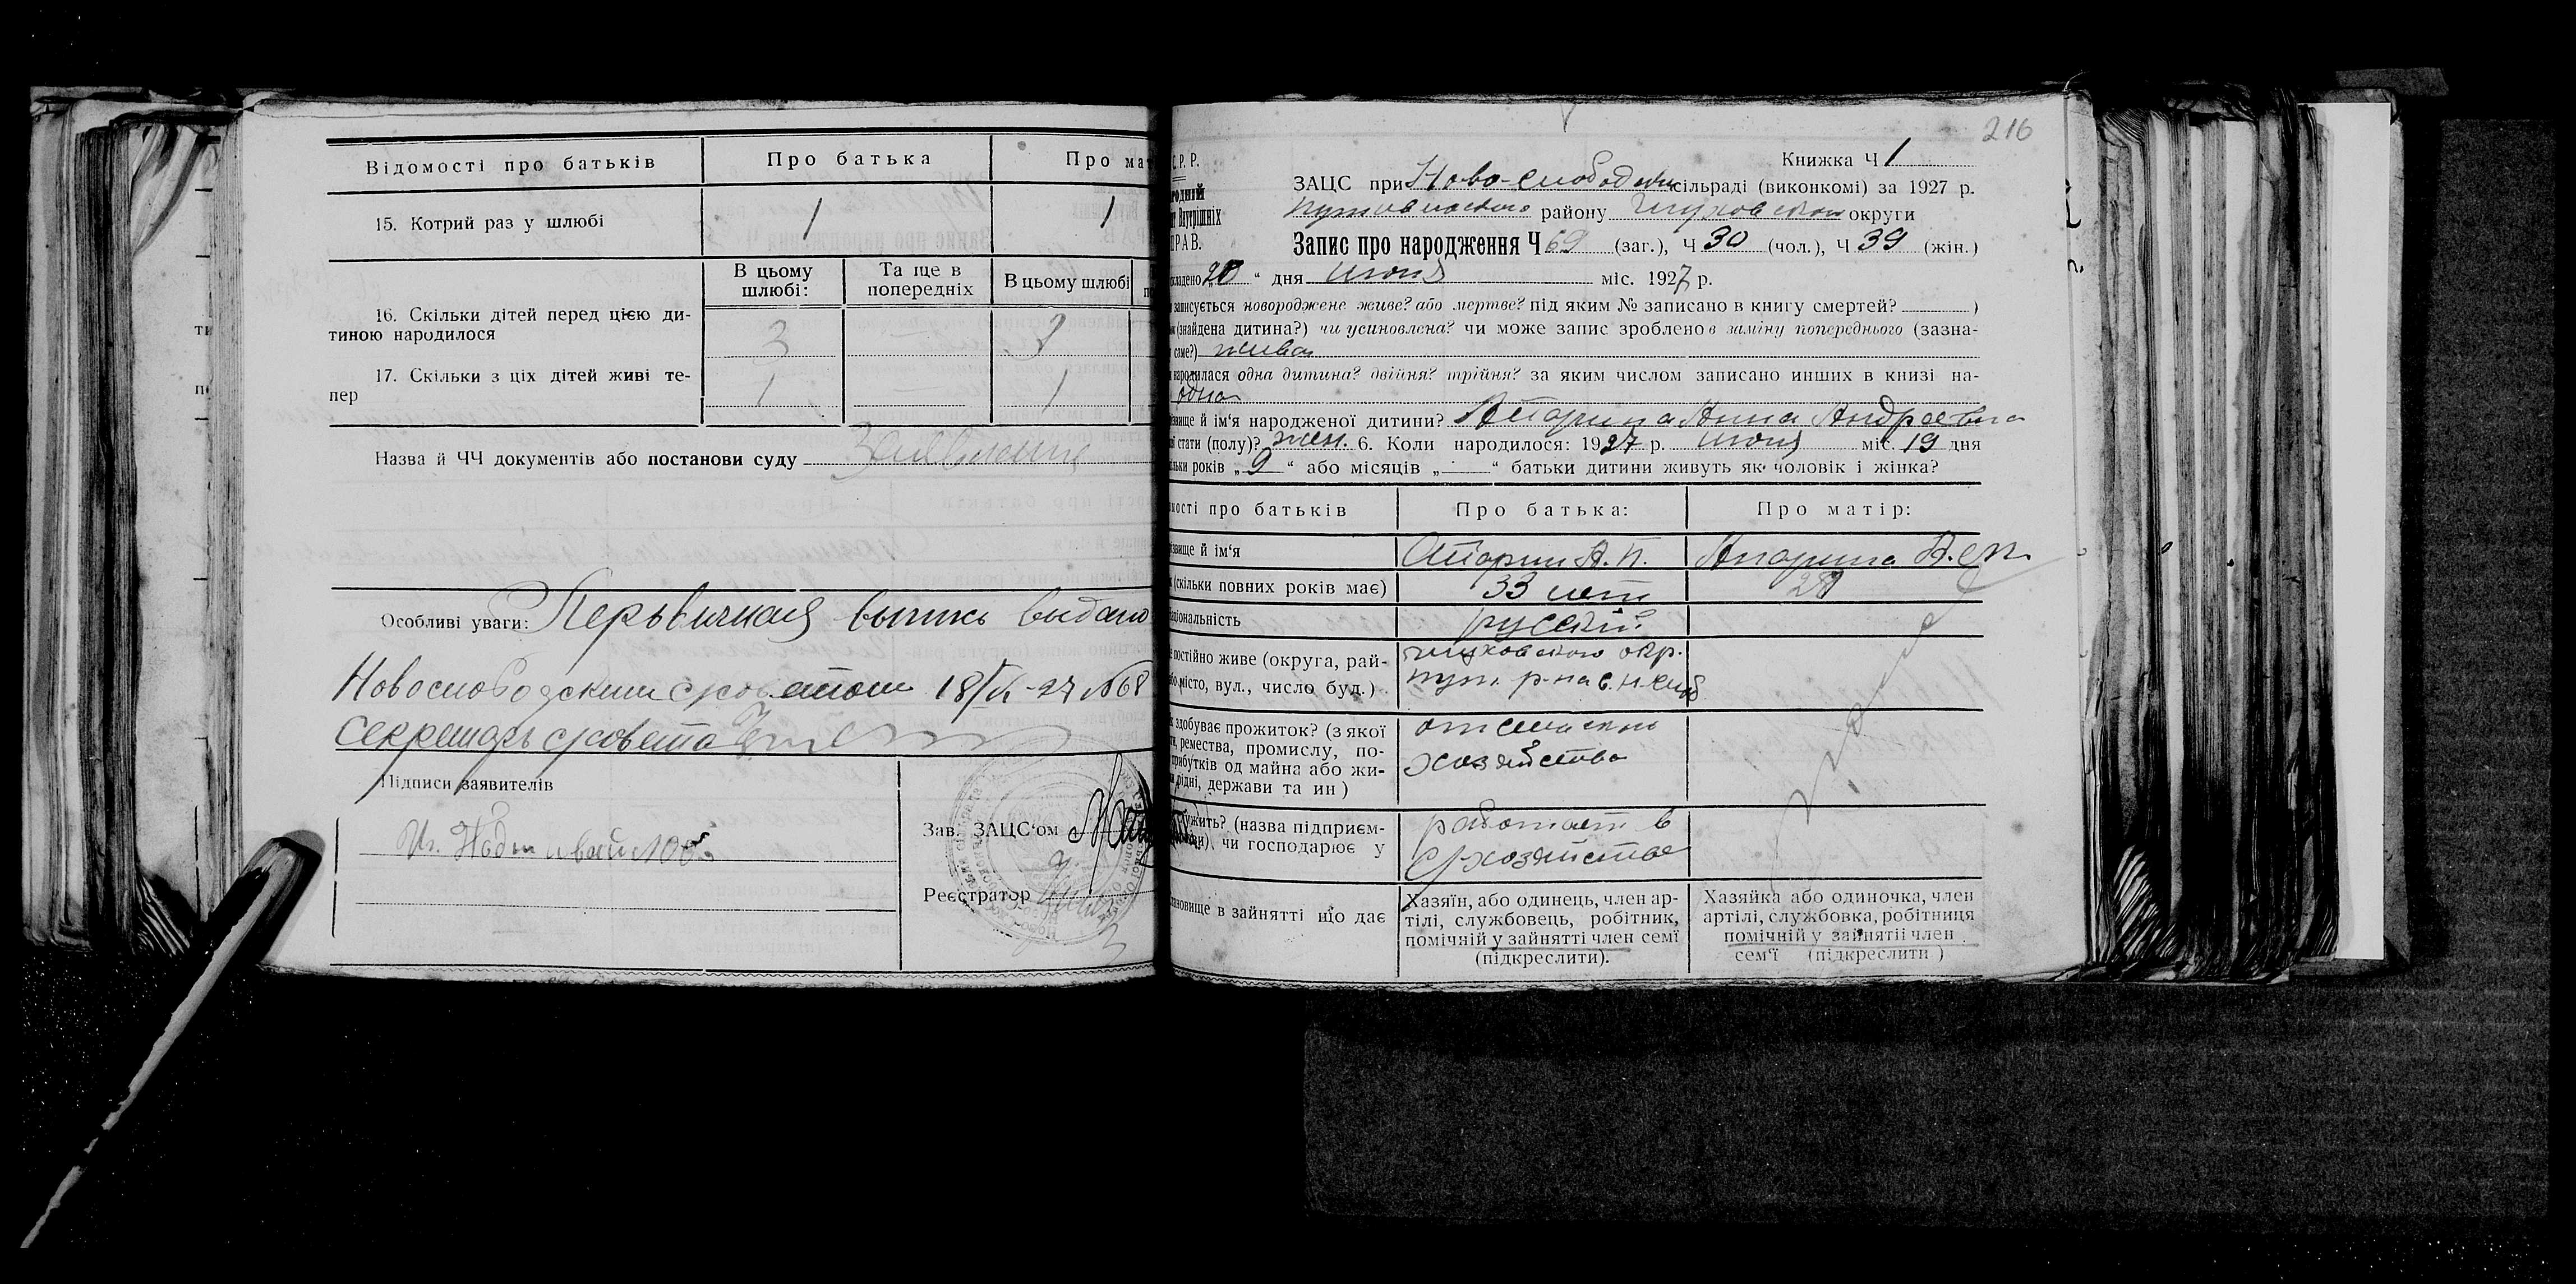 Відомості про батьків
Про батька
Про мат
15. Котрий раз у шлюбі
1
1
В цьому шлюбі:
Та ще в попередніх
В цьому шлюбі
16. Скільки дітей перед цією ди-
тиною народилося
3
3
17. Скільки з ціх дітей живі те-
пер
1
1
Назва й ЧЧ документів або постанови суду
Заявление
Особливі уваги:
выпись выдано
сековетом 18/VI-27 №68
Секретарь сковета
Підписи заявителів
Зав. ЗАЦС'ом
Реєстратор
216
С.Р.Р.
родній
Внутрішніх
ПРАВ.
Книжка Ч 1
ЗАЦС при Ново-слободском сільраді (виконкомі) за 1927 р.
Путивльского району Глуховской округи
Запис про народження Ч 69 (заг.), Ч 30 (чол.), Ч 39 (жін.)
складено 20 “ дня июня міс. 1927 р.
записується новороджене живе? або мертве? під яким № записано в книгу смертей? )
(знайдена дитина?) чи усиновлена? чи може запис зроблено в заміну попереднього (зазна-
саме?) живая
народилася одна дитина? двійня? трійня? за яким числом записано инших в книзі на-
одна
звище й ім'я народженої дитини? Апарина Анна Андреевна
стати (полу)? жен. 6. Коли народилося: 1927 р. июня міс. 19 дня
льки років „ 9 “ або місяців „ “ батьки дитини живуть як чоловік і жінка?
мості про батьків
Про батька:
Про матір:
звище й ім'я
Апарин А. П.
Апарина А.
(скільки повних років має)
33 лет
28
ціональність
русский
постійно живе (округа, рай-
місто, вул., число буд.)
глуховского окр.
пут. р-на с. Н-слоб
здобуває прожиток? (з якої
ремества, промислу, по-
прибутків од майна або жи-
рідні, держави та ин)
от сельского
хозяйства
ужить? (назва підприєм-
чи господарює у
работает в
с/хозяйстве
тановище в зайнятті що дає
Хазяїн, або одинець, член ар-
тілі, службовець, робітник,
помічній у зайнятті член семі
(підкреслити).
Хазяйка або одиночка, член
артілі, службовка, робітниця
помічній у зайнятіі член
сем'ї (підкреслити)